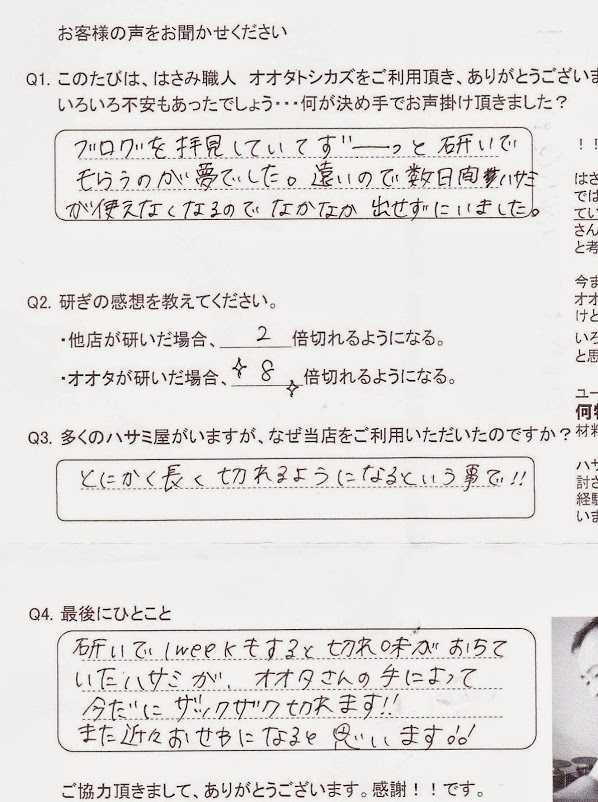 お客様の声をお聞かせください
Q1. このたびは、はさみ職人 オオタトシカズをご利用頂き、ありがとうございま
いろいろ不安もあったでしょう・・・何が決め手でお声掛け頂きました？
ブログを拝見していてず゛ーーっと研いで
もらうのが夢でした。遠いので数日間ハサミ
が使えなくなるのでなかなか出せずにいました。
Q2. 研ぎの感想を教えてください。
・他店が研いだ場合、 2 倍切れるようになる。
・オオタが研いだ場合、 8 倍切れるようになる。
Q3. 多くのハサミ屋がいますが、なぜ当店をご利用いただいたのですか？
とにかく長く切れるようになるという事で!!
Q4. 最後にひとこと
研いで1weekもすると切れ味がおちて
いたハサミが、オオタさんの手によって
今だにザックザク切れます!!
また近々おせわになると思います!!
ご協力頂きまして、ありがとうございます。感謝！！です。
！！
はさ
では
てい
さん
と考
今ま
オオ
けと
いろ
と思
ユー
何物
材料
ハサ
討さ
経験
いま